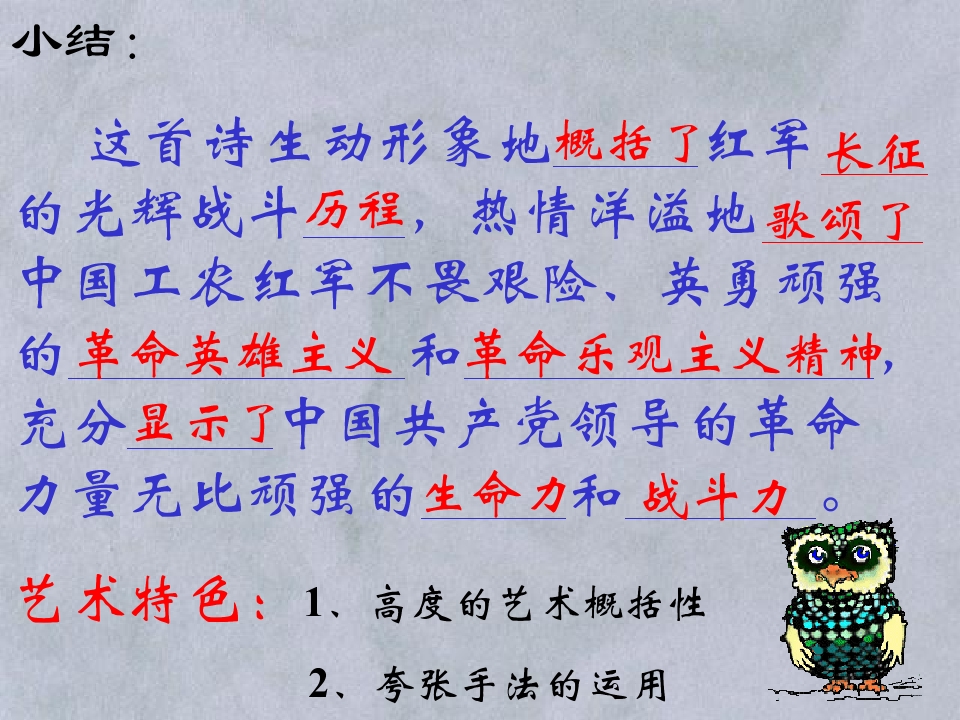 小结：
这首诗生动形象地概括了红军长征
的光辉战斗历程，热情洋溢地歌颂了
中国工农红军不畏艰险、英勇顽强
的革命英雄主义和革命乐观主义精神，
充分显示了中国共产党领导的革命
力量无比顽强的生命力和战斗力。
艺术特色：1、高度的艺术概括性
2、夸张手法的运用